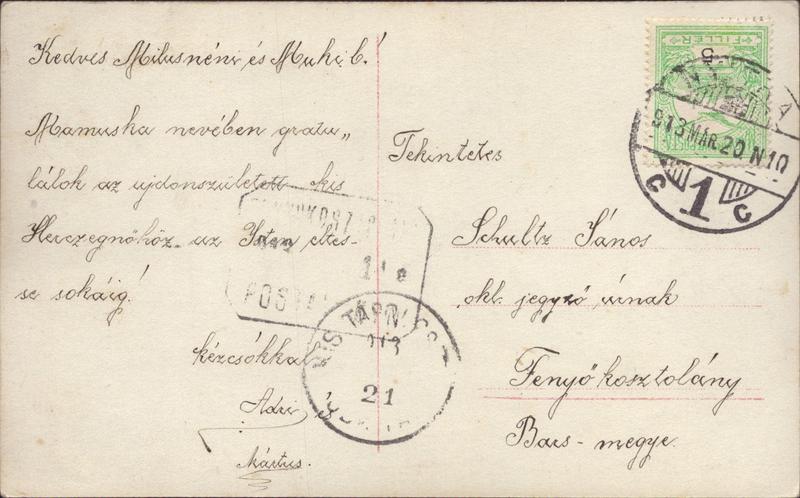 Kedves Milusnéni és Muki b.!
Mamuska nevében gratu„
lálok az ujdonszületett kis
Herczegnőhöz az Isten éltes-
se sokáig!
kézcsókkal
Adri és
Mártus.
Tekintetes
Schultz János
okl. jegyző úrnak
Fenyőkosztolány
Bars-megye.
FILLÉR
5
913 MÁR. 20 N10
C 1 C
POSTA
913
21